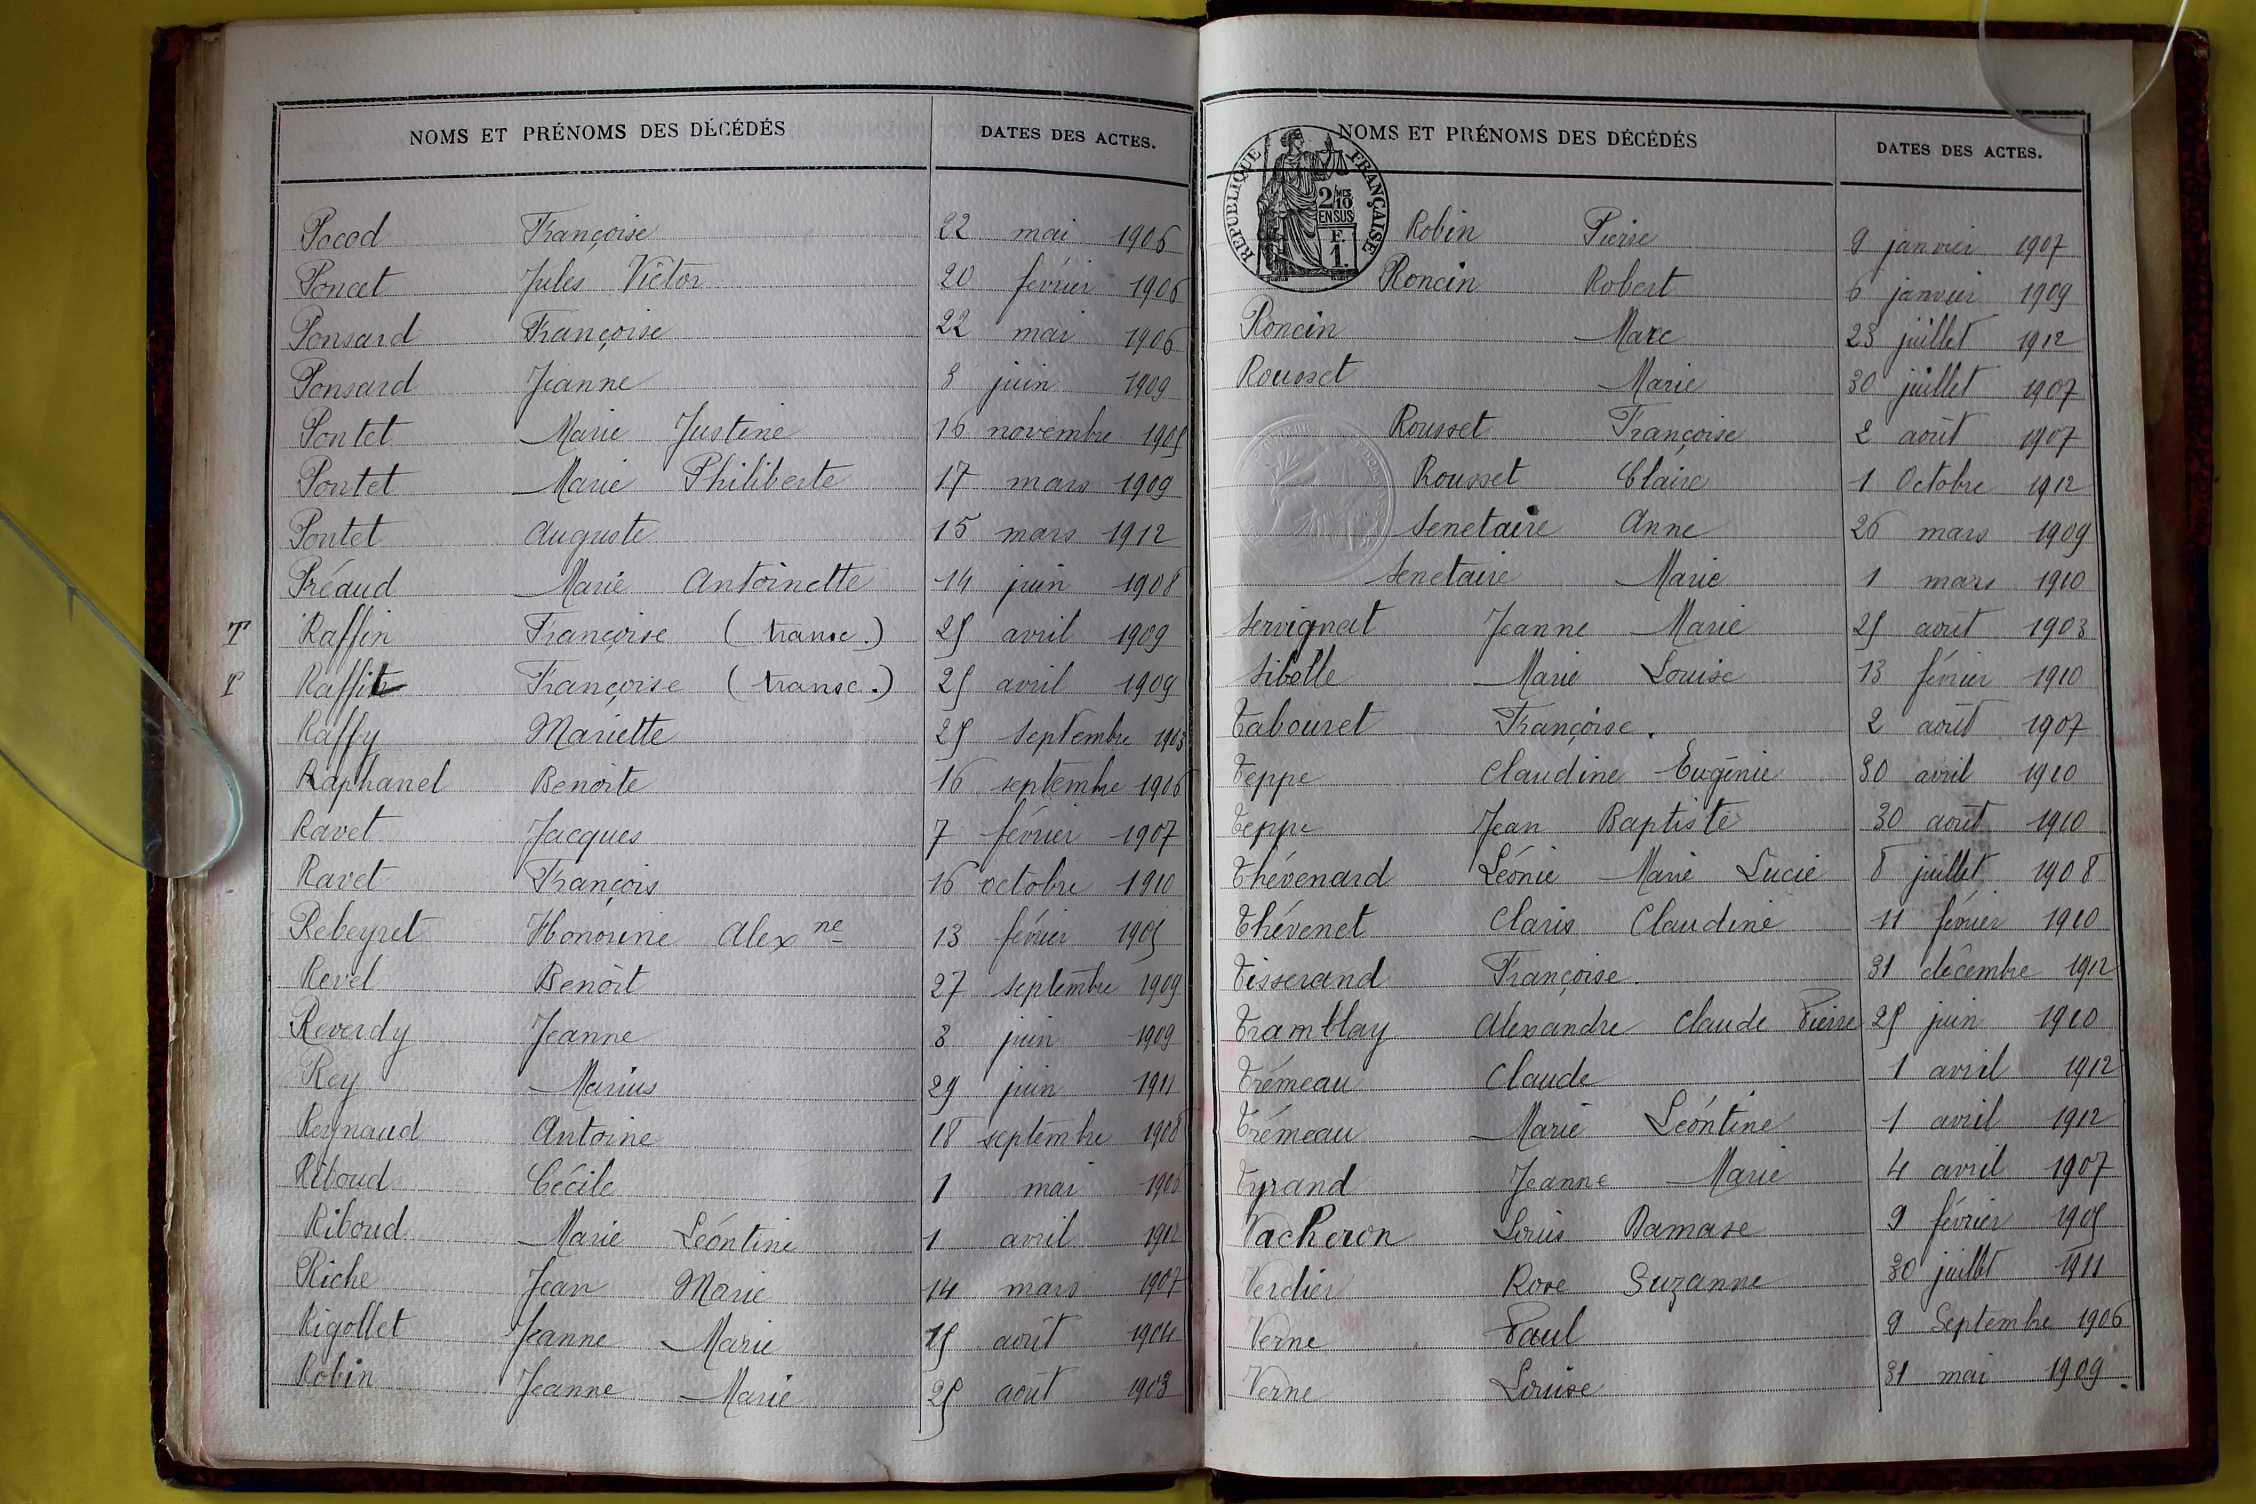 NOMS ET PRÉNOMS DES DÉCÉDÉS DATES DES ACTES.
Pacod Françoise 22 mai 1906
Poncet Jules Victor 20 février 1906
Ponsard Françoise 22 mai 1906
Ponsard Jeanne 8 juin 1909
Pontet Marie Justine 16 novembre 1905
Pontet Marie Philiberte 17 mars 1909
Pontet Auguste 15 mars 1912
Préaud Marie Antoinette 14 juin 1908
T Raffin Françoise (transc.) 25 avril 1909
T Raffin Françoise (transc.) 25 avril 1909
Raffy Mariette 25 septembre 1903
Raphanel Benoîte 16 septembre 1906
Ravet Jacques 7 février 1907
Ravet François 16 octobre 1910
Rebeyret Honorine Alexne 13 février 1905
Revel Benoît 27 septembre 1909
Reverdy Jeanne 8 juin 1909
Rey Marius 29 juin 1911
Reynaud Antoine 18 septembre 1908
Riboud Cécile 1 mai
Riboud Marie Léontine 1 avril 1912
Riche Jean Marie 14 mars 1907
Rigollet Jeanne Marie 15 août 1904
Robin Jeanne Marie 25 août 1903
NOMS ET PRÉNOMS DES DÉCÉDÉS DATES DES ACTES.
RÉPUBLIQUE FRANÇAISE
2/10 MES
EN SUS
F.
1.
Robin Pierre 9 janvier 1907
Roncin Robert 6 janvier 1909
Roncin Marc 23 juillet 1912
Rousset Marie 30 juillet 1907
Rousset Françoise 2 août 1907
Rousset Claire 1 Octobre 1912
Senetaire Anne 26 mars 1909
Senetaire Marie 1 mars 1910
Servignat Jeanne Marie 25 août 1903
Sibelle Marie Louise 13 février 1910
Tabouret Françoise. 2 août 1907
Teppe Claudine Eugénie 30 avril 1910
Teppe Jean Baptiste 30 août 1910
Thévenard Léonie Marie Lucie 8 juillet 1908
Thévenet Claris Claudine 11 février 1910
Tisserand Françoise. 31 décembre 1912
Tramblay Alexandre Claude Pierre 25 juin 1910
Trémeau Claude 1 avril 1912
Trémeau Marie Léontine 1 avril 1912
Tyrand Jeanne Marie 4 avril 1907
Vacheron Louis Damase 9 février 1905
Verdier Rose Suzanne 30 juillet 1911
Verne Paul 9 Septembre 1906
Verne Louise 31 mai 1909.